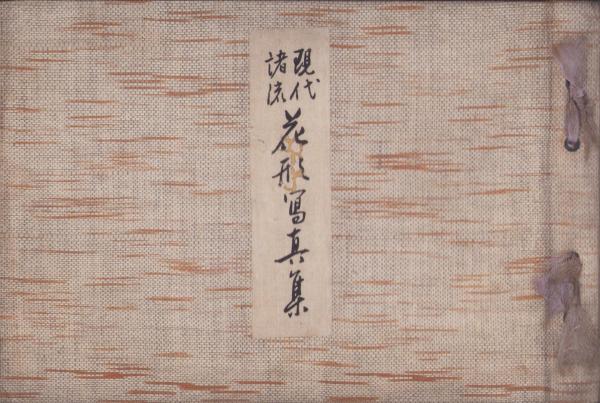 現代
諸流
花形写真集